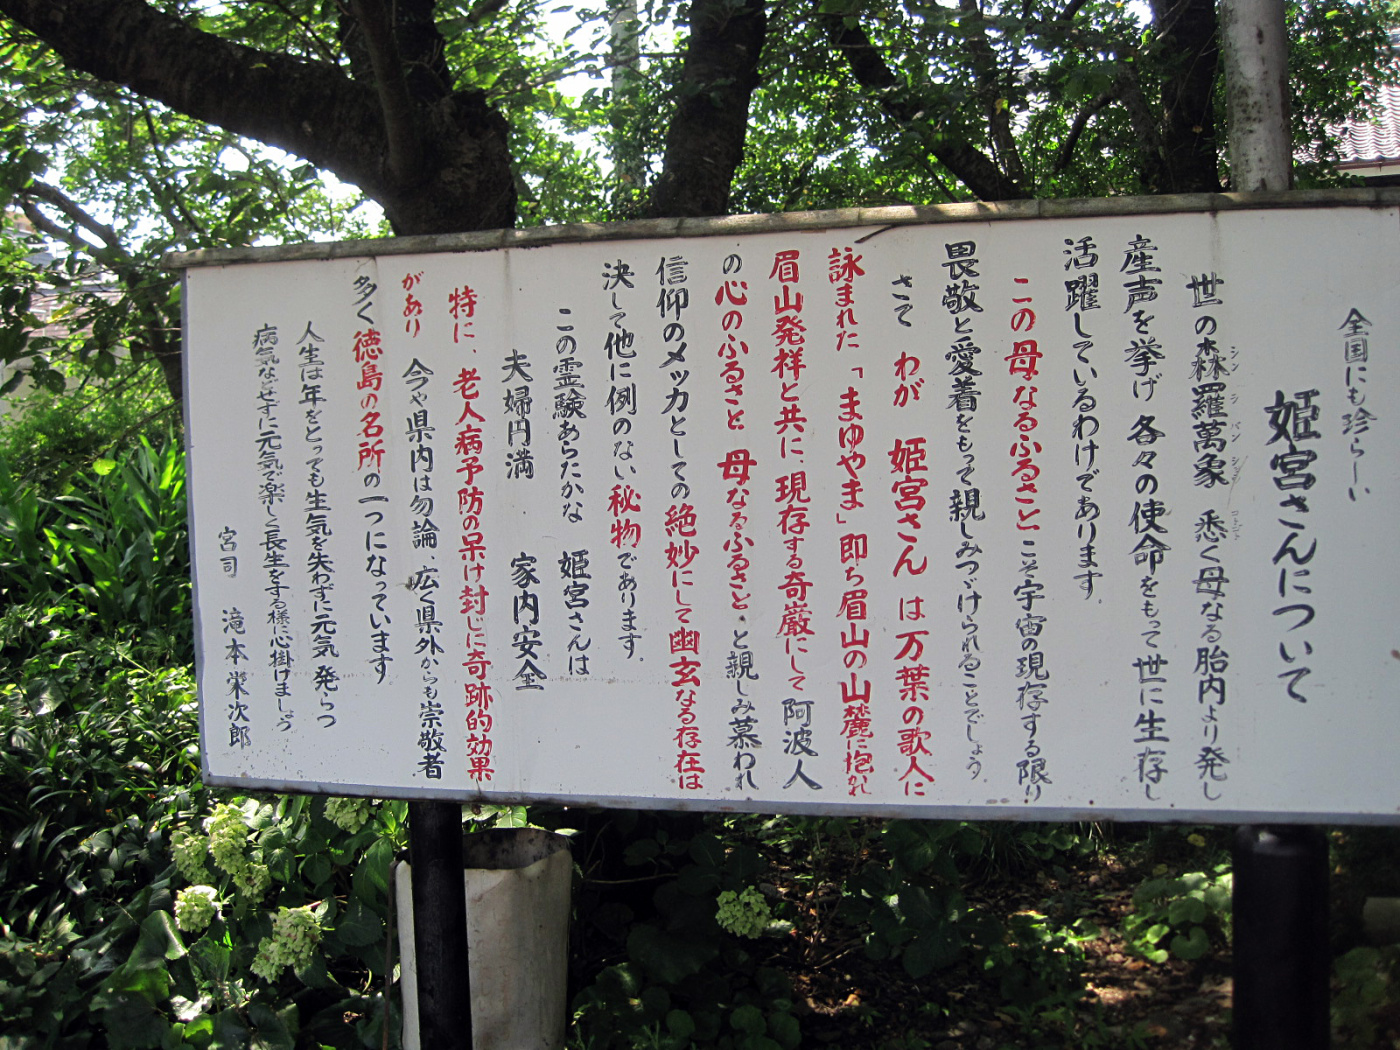 全国にも珍らしい
姫宮さんについて
世の森羅萬象 悉く母なる胎内より発し
シンラバンショウ
ことごと
産声を挙げ 各々の使命をもって世に生存し
活躍しているわけであります。
この母なるふるさとこそ宇宙の現存する限り
畏敬と愛着をもって親しみつゞけられることでしょう
さて わが 姫宮さん は万葉の歌人に
詠まれた「まゆやま」即ち眉山の山麓に抱かれ
眉山発祥と共に、現存する奇巌にして 阿波人
の心のふるさと 母なるふるさと・と親しみ慕われ
信仰のメッカとしての絶妙にして幽玄なる存在は
決して他に例のない秘物であります。
この霊験あらたかな 姫宮さんは
夫婦円満 家内安全
特に、老人病予防の呆け封じに奇跡的効果
があり 今や県内は勿論、広く県外からも崇敬者
多く徳島の名所の一つになっています
人生は年をとっても生気を失わずに元気発らつ
病気などせずに元気で楽しく長生をする様に心掛けましょう
宮司 滝本栄次郎